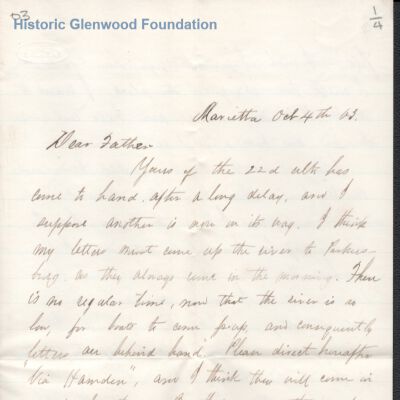 03
Historic Glenwood Foundation
1/4
Marietta Oct 4th 63.
Dear Father
Yours of the 22d ult has
come to hand after a long delay, and I
suppose another is now on its way. I think
my letters must come up the river to Parkers-
burg, as they always come in the morning. There
is no regular time, now that the river is so
low, for boats to come up, and consequently
"letters are behind hand". Please direct hereafter
"Via Hamden", and I think they will come in